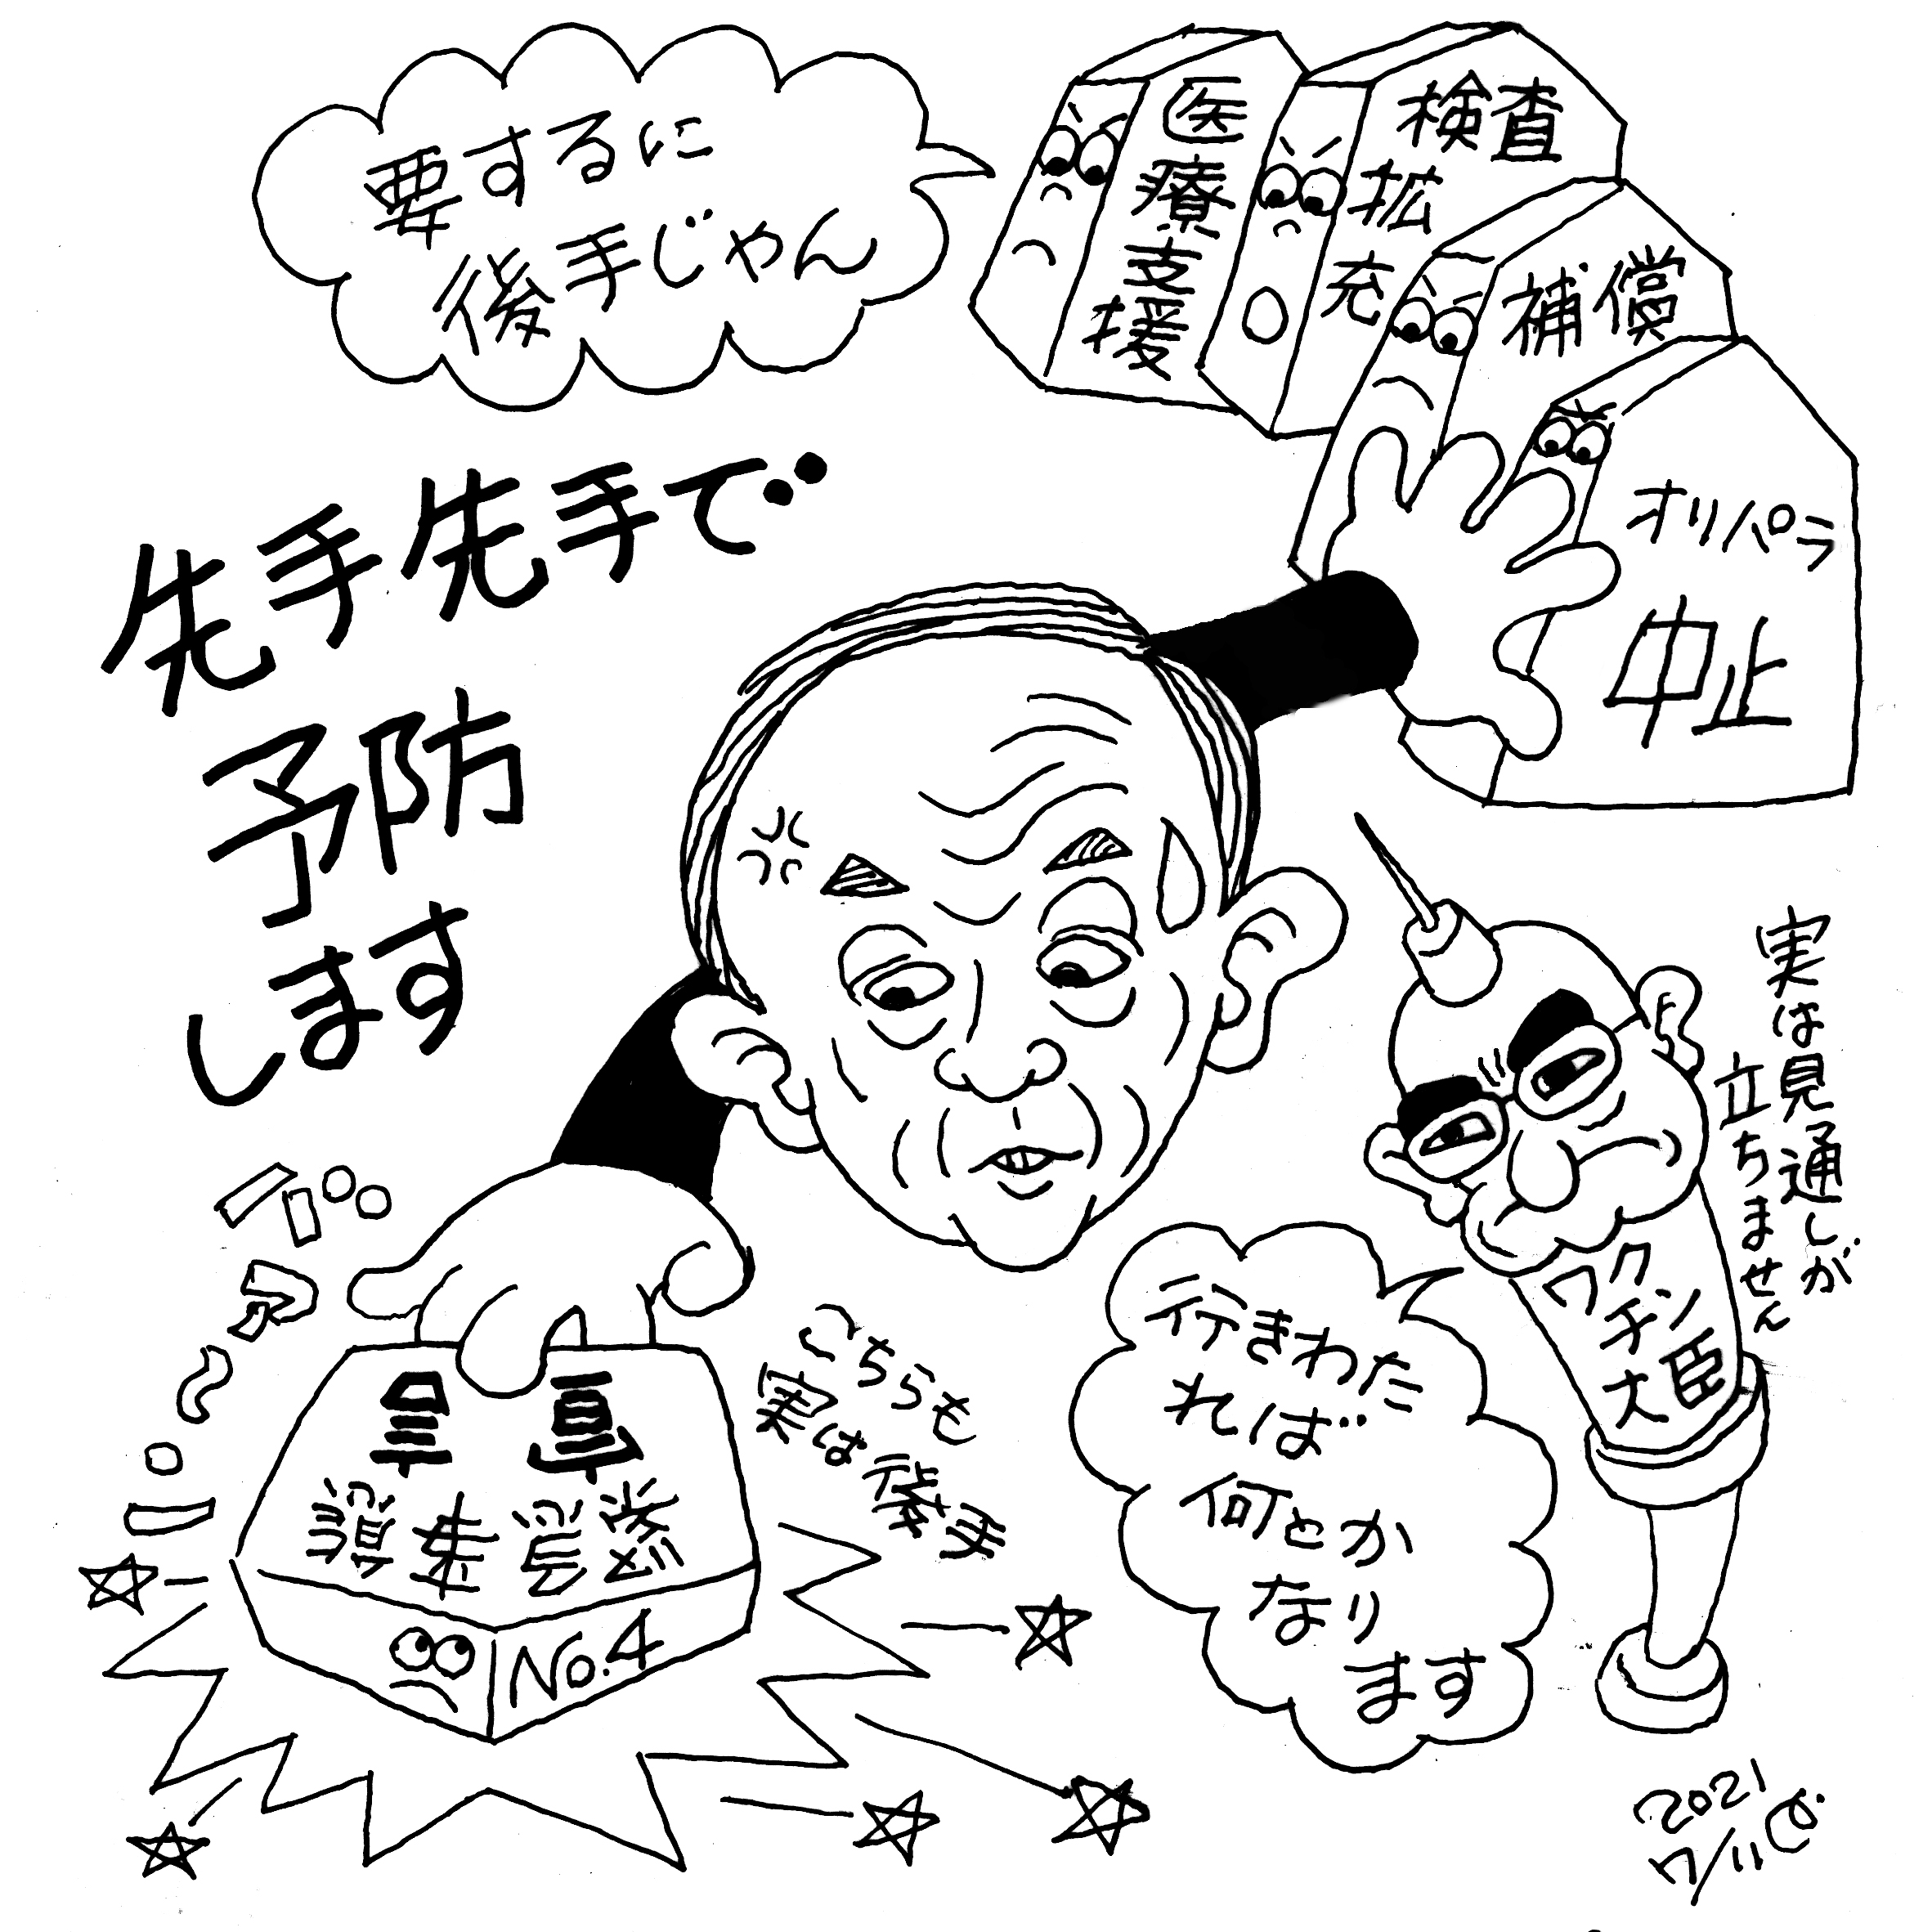 要するに
後手じゃん
医療支援
検査
拡充
補償
オリパラ
中止
先手先手で
予防
します
実は見通しが
立ちません
ワクチン
大臣
行きわた
れば
何とか
なり
ます
こちらも
実は後手
No.4
2021
7/11